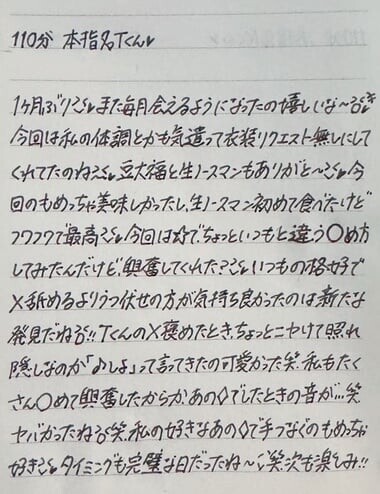 110分 本指名Tくん♥
1ヶ月ぶり♥また毎月会えるようになったの嬉しいな〜
今回は私の体調とかも気遣って衣装リクエスト無しにして
くれてたのね♥豆大福と生ノースマンもありがと〜♥今
回のもめっちゃ美味しかったし、生ノースマン初めて食べたけど
フワフワで最高♥今回は でちょっといつもと違う〇め方
してみたんだけど、興奮してくれた？♥いつもの格好で
×舐めるよりうつ伏せの方が気持ち良かったのは新たな
発見だね!!Tくんの×褒めたとき、ちょっとニヤけて照れ
隠しなのか「♪しよ」って言ってきたの可愛かった笑 私もたく
さん〇めて興奮したからか、あの◇でしたときの音が...笑
ヤバかったね 笑 私の好きなあの◇で手つなぐのもめっちゃ
好き♥タイミングも完璧な日だったね〜 笑 次も楽しみ!!